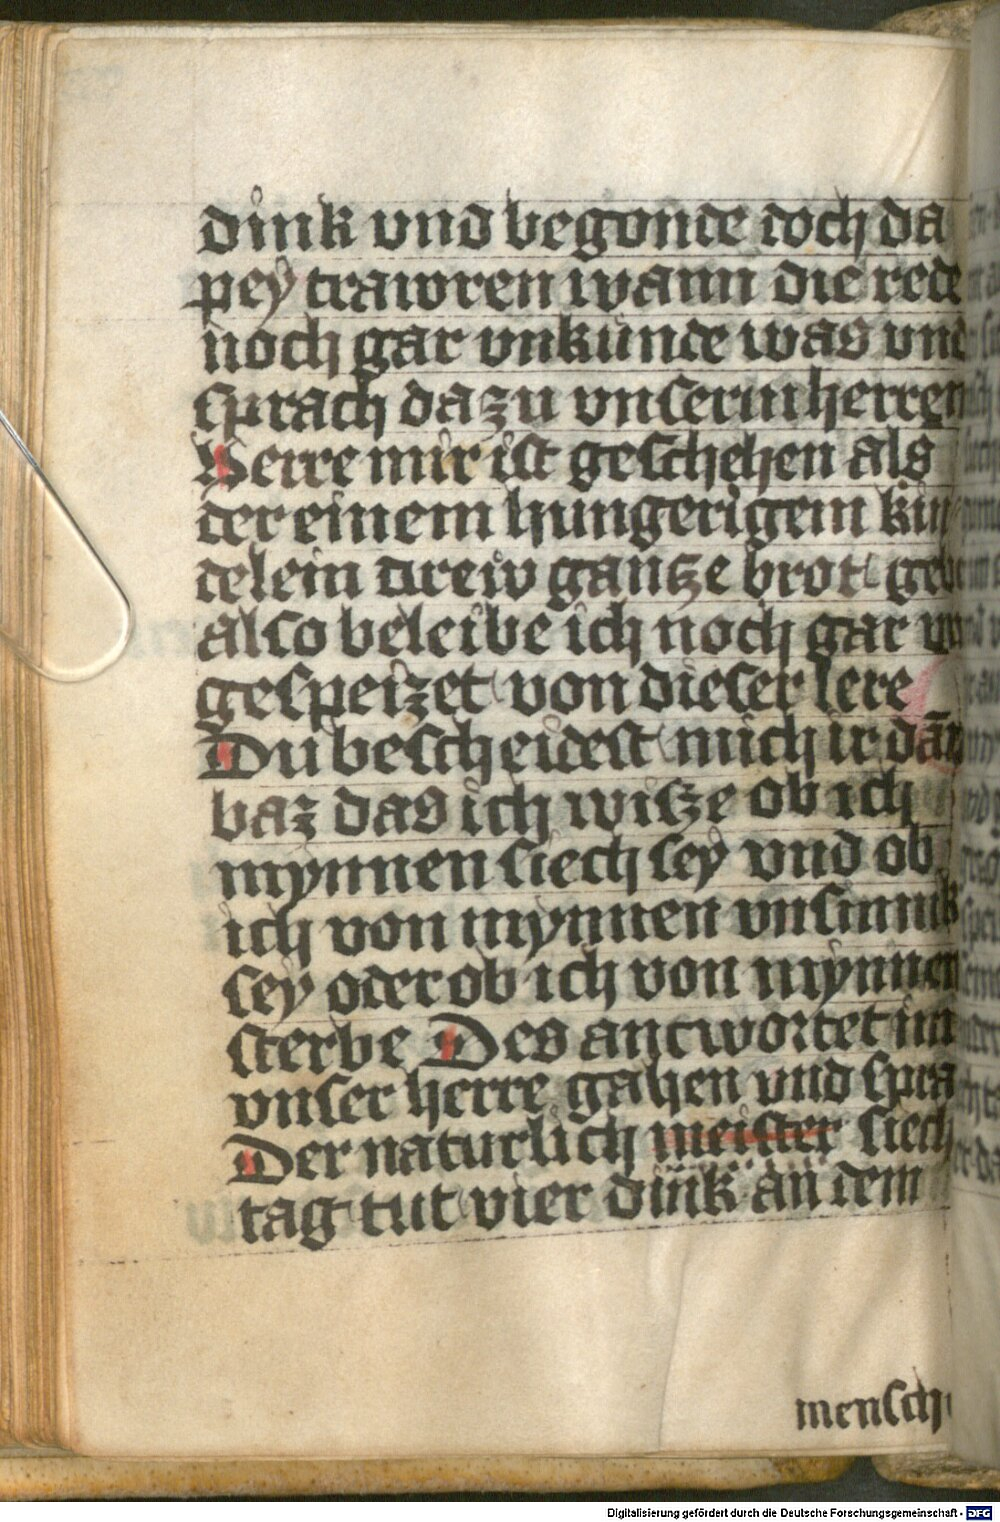 dink vnd begonde doch da
pey trawren wann die rede
noch gar vnkunde was vnd
sprach dazu vnserm herren
Herre mir ist geschehen als
der einem hungerigem kin
delein drew gantze brot geb
also beleibe ich noch gar vn
gespeizet von dieser lere
Du bescheidest mich ir dā
baz das ich wisze ob ich
mynnen siech sey vnd ob
ich von mynnen vnsinnik
sey oder ob ich von mynnen
sterbe Des antwortet im
vnser herre gahen vnd spra
Der naturlich meister siech
tag tut vier dink an dem
mensch
Digitalisierung gefördert durch die Deutsche Forschungsgemeinschaft - DFG